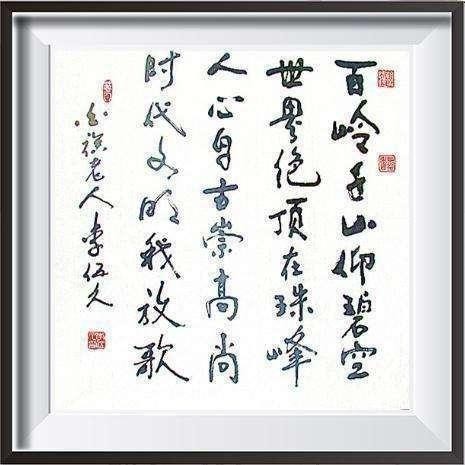 百岭千山仰碧空
世界绝顶在珠峰
人心自古崇高尚
时代文明我放歌
老人李伍久